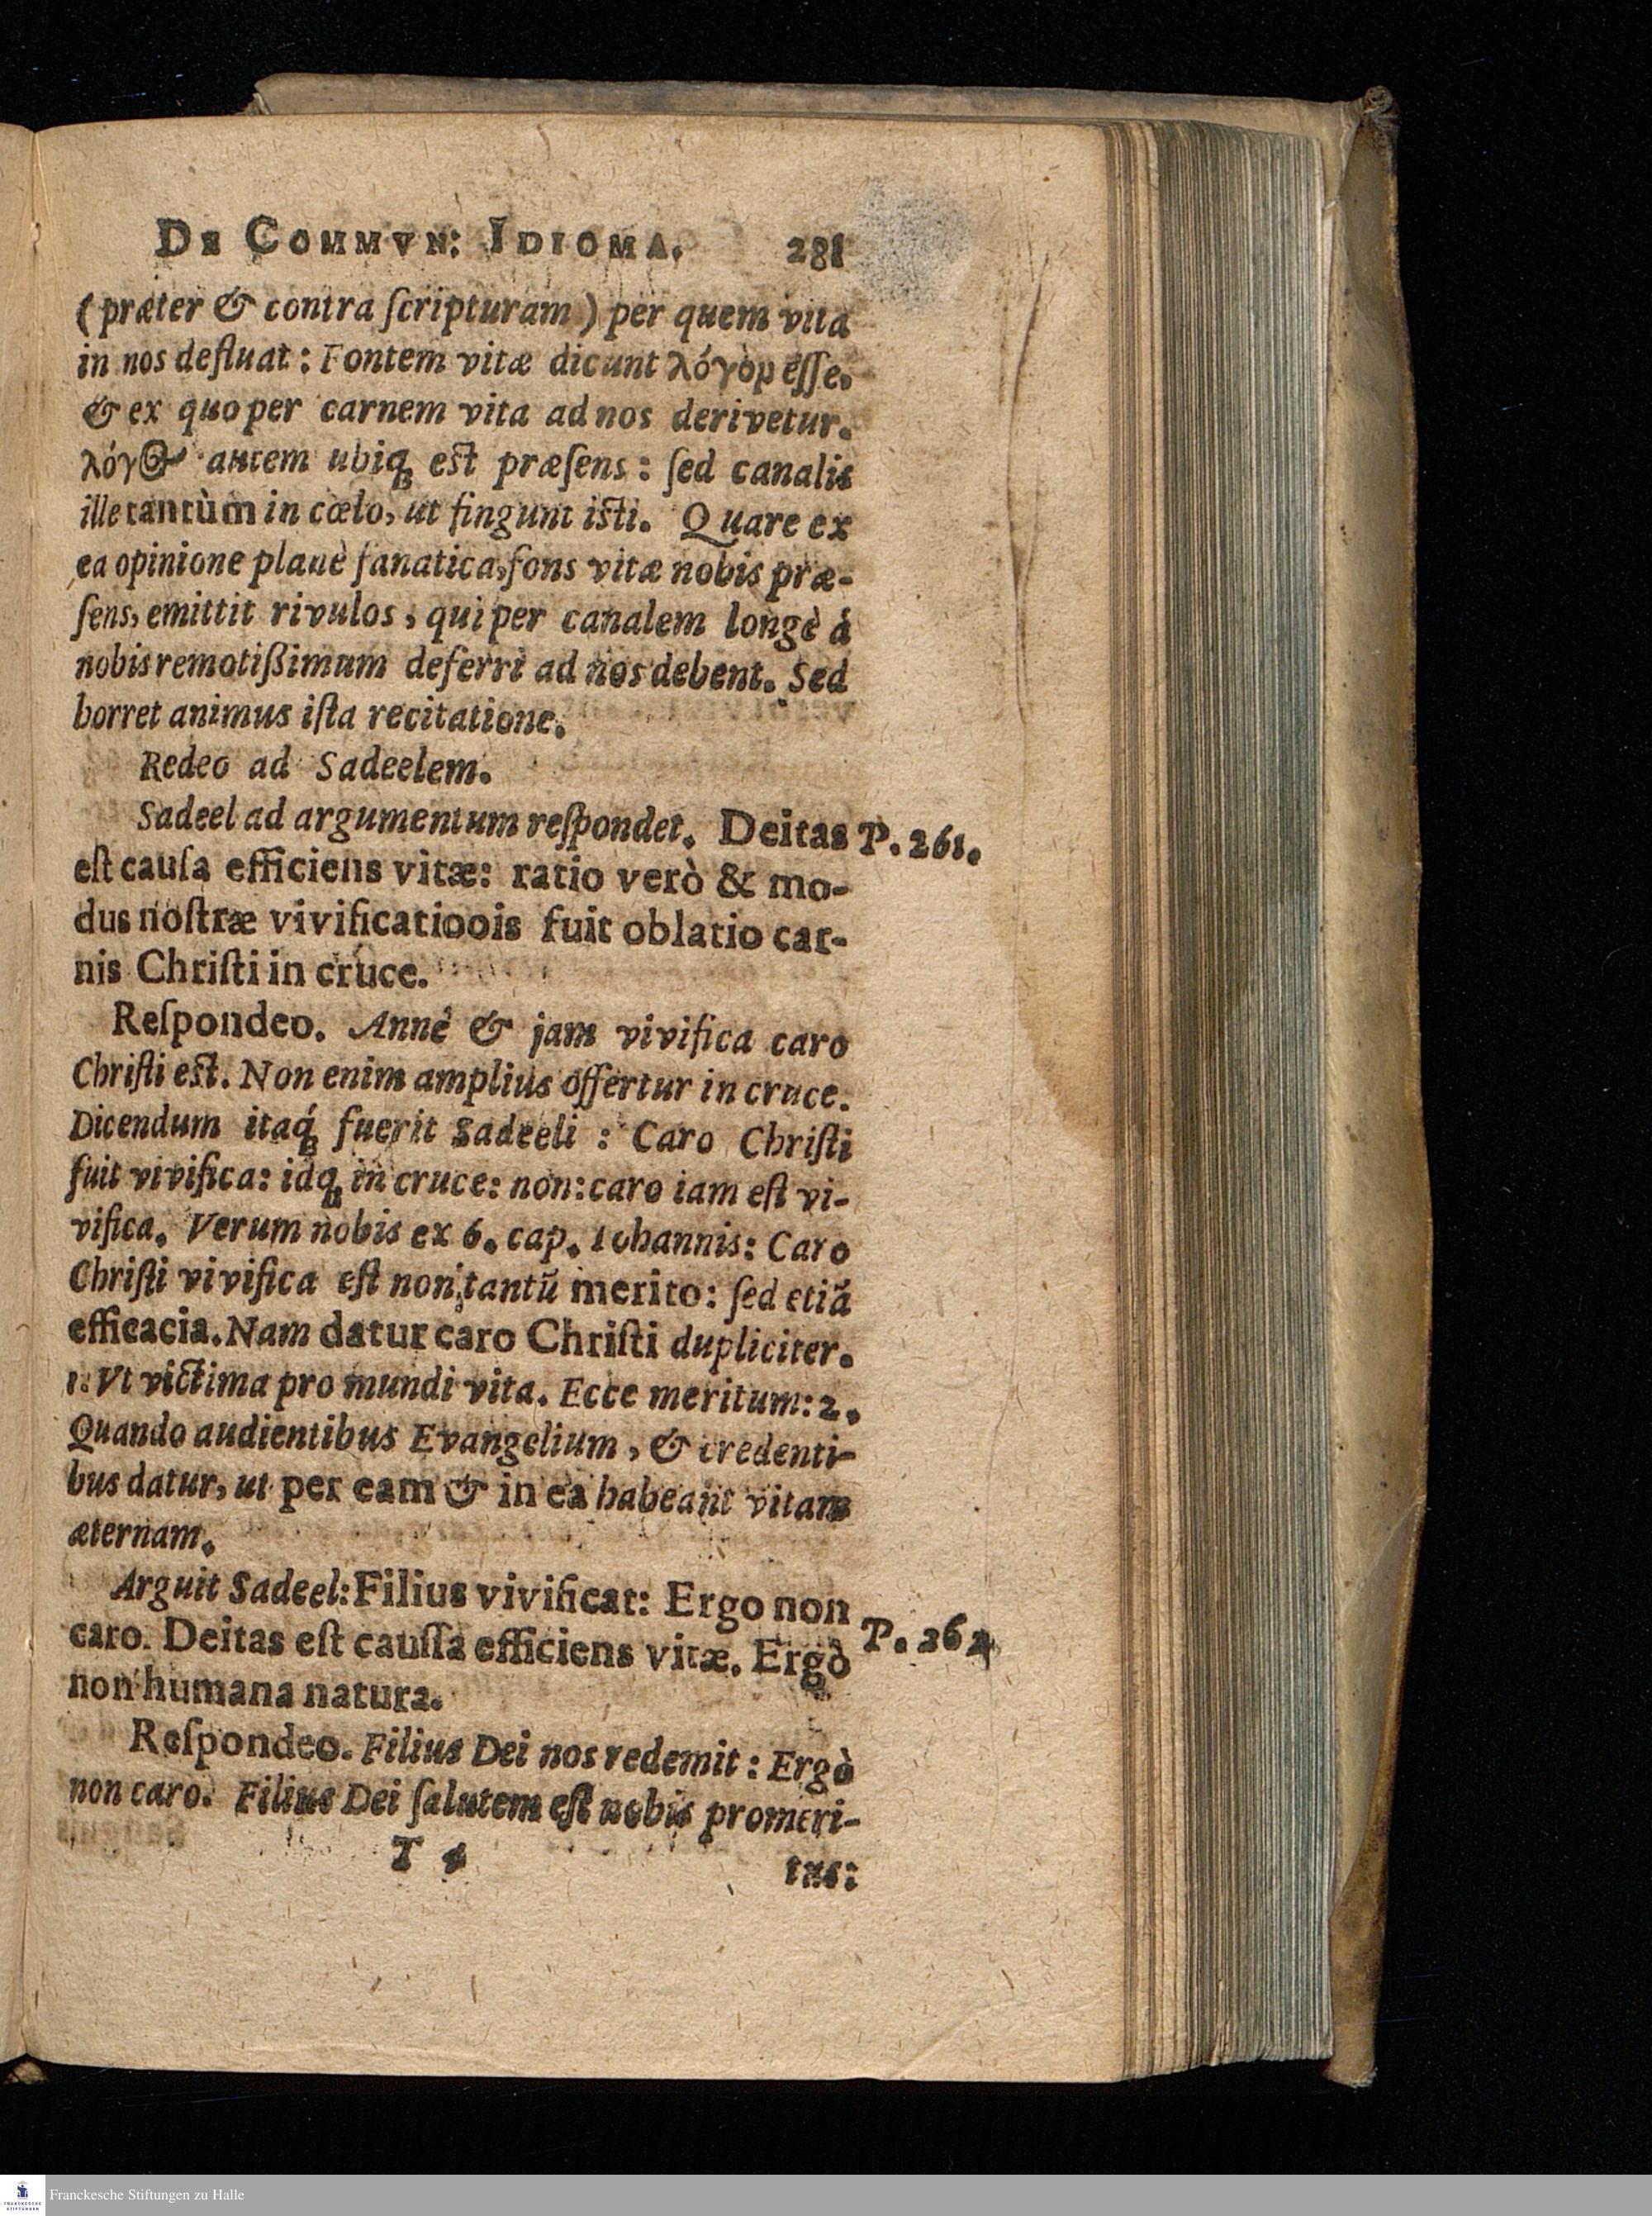 De Commvn: Idioma. 281
(præter & contra ſcripturam) per quem vita
in nos defluat: Fontem vitæ dicunt λόγομ eſſe.
& ex quo per carnem vita ad nos derivetur.
λόγ&#x1D7; autem ubiq; eſt præſens: ſed canalis
ille tantùm in cœlo, ut fingunt iſti. Quare ex
ea opinione planè fanatica, fons vitæ nobis præ-
ſens, emittit rivulos, qui per canalem longè á
nobis remotiſſimum deferri ad nos debent. Sed
horret animus iſta recitatione.
Redeo ad Sadeelem.
Sadeel ad argumentum reſpondet. Deitas P. 261.
eſt cauſa efficiens vitæ: ratio verò & mo-
dus noſtræ vivificatioois fuit oblatio car-
nis Chriſti in cruce.
Reſpondeo. Annè & jam vivifica caro
Chriſti eſt. Non enim amplius offertur in cruce.
Dicendum itaq́; fuerit Sadeeli: Caro Chriſti
fuit vivifica: idq; in cruce: non: caro iam eſt vi-
vifica. Verum nobis ex 6. cap. Iohannis: Caro
Chriſti vivifica eſt non tantũ merito: ſed etiã
efficacia. Nam datur caro Chriſti dupliciter.
1. Vt victima pro mundi vita. Ecce meritum: 2.
Quando audientibus Evangelium, & credenti-
bus datur, ut per eam & in ea habeant vitam
æternam.
Arguit Sadeel: Filius vivificat: Ergo non
caro. Deitas eſt cauſſa efficiens vitæ. Ergò P. 262
non humana natura.
Reſpondeo. Filius Dei nos redemit: Ergò
non caro. Filius Dei ſalutem eſt nobis promeri-
T 4 tus:
Franckesche Stiftungen zu Halle
FRANCKESCHE
STIFTUNGEN